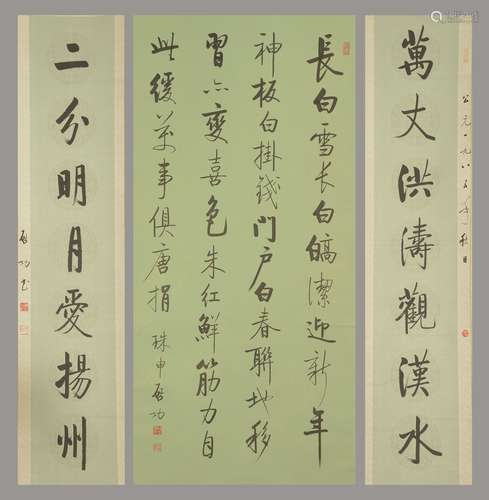 萬丈洪濤觀漢水
公元一九八五年秋日
長白雪长白皜潔迎新年
神板白掛錢门户白春聯地移
習亦變喜色朱红鮮筋力自
此缓萬事俱唐捐 珠申啟功
二分明月愛揚州
啟功書